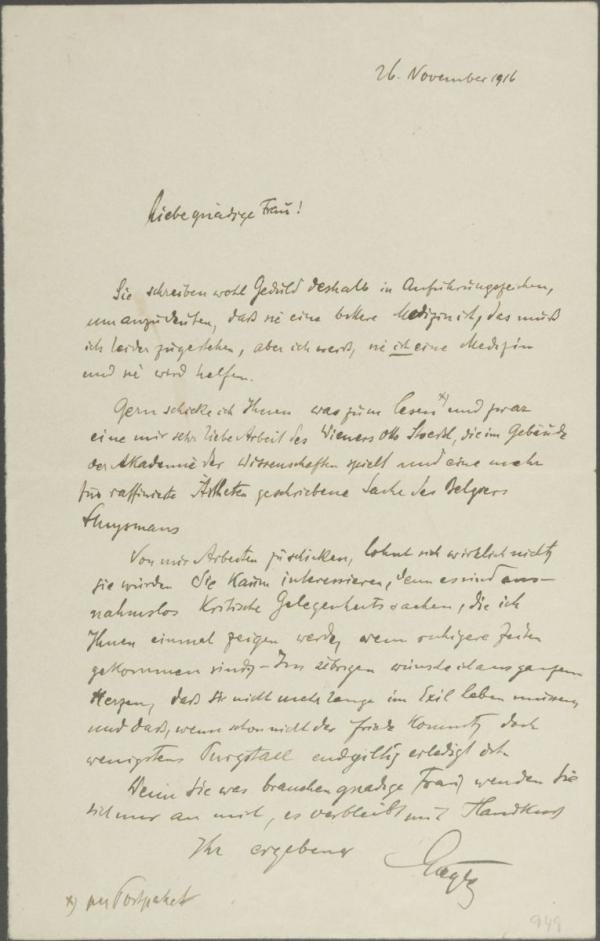 26. November 1916
Liebe gnädige Frau!
Sie schreiben wohl Geduld deshalb in Anführungszeichen,
um anzudeuten, daß sie eine bittere Medizin ist, das muß
ich leider zugestehen, aber ich weiß, sie ist eine Medizin
und sie wird helfen.
Gern schicke ich Ihnen was zum lesen *) und zwar
eine mir sehr liebe Arbeit des Wieners Otto Stoessl, die im Gebäude
der Akademie der Wissenschaften spielt und eine mehr
für raffinierte Ästheten geschriebene Sache des Belgiers
Huysmans
Von mir Arbeiten zu schicken, lohnt sich wirklich nicht,
sie würden Sie kaum interessieren, denn es sind aus-
nahmslos kritische Gelegenheitssachen, die ich
Ihnen einmal zeigen werde, wenn ruhigere Zeiten
gekommen sind. - Im übrigen wünsche ich aus ganzem
Herzen, daß Sie nicht mehr lange im Exil leben müssen,
und daß, wenn schon nicht der Friede kommt, doch
wenigstens Purgstall endgiltig erledigt ist.
Wenn Sie was brauchen gnädige Frau, wenden Sie
sich nur an mich, es verbleibt mit Handkuss
Ihr ergebener
*) per Postpaket
949